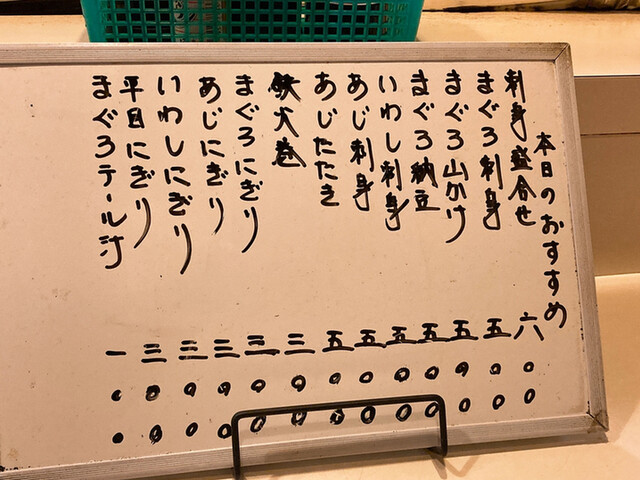 本日のおすすめ
刺身盛合せ 六〇〇
まぐろ刺身 五〇〇
まぐろ山かけ 五〇〇
まぐろ納豆 五〇〇
いわし刺身 五〇〇
あじ刺身 五〇〇
あじたたき 五〇〇
鉄火巻 三〇〇
まぐろにぎり 三〇〇
あじにぎり 三〇〇
いわしにぎり 三〇〇
平目にぎり 三〇〇
まぐろテール汁 一〇〇